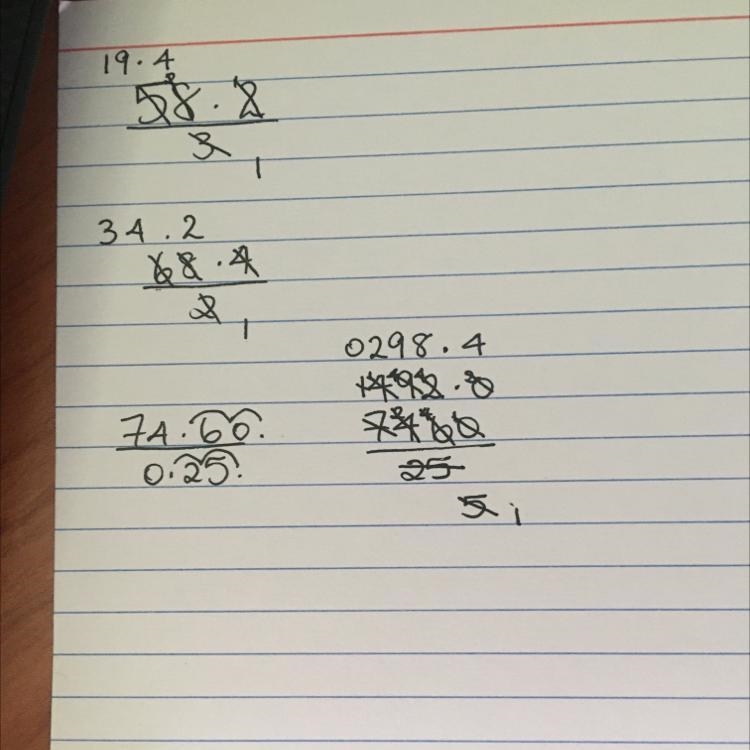 19.4
58.2
3
1
34.2
68.4
2
1
0298.4
1492.0
74.60.
7460
0.25.
25
5 1